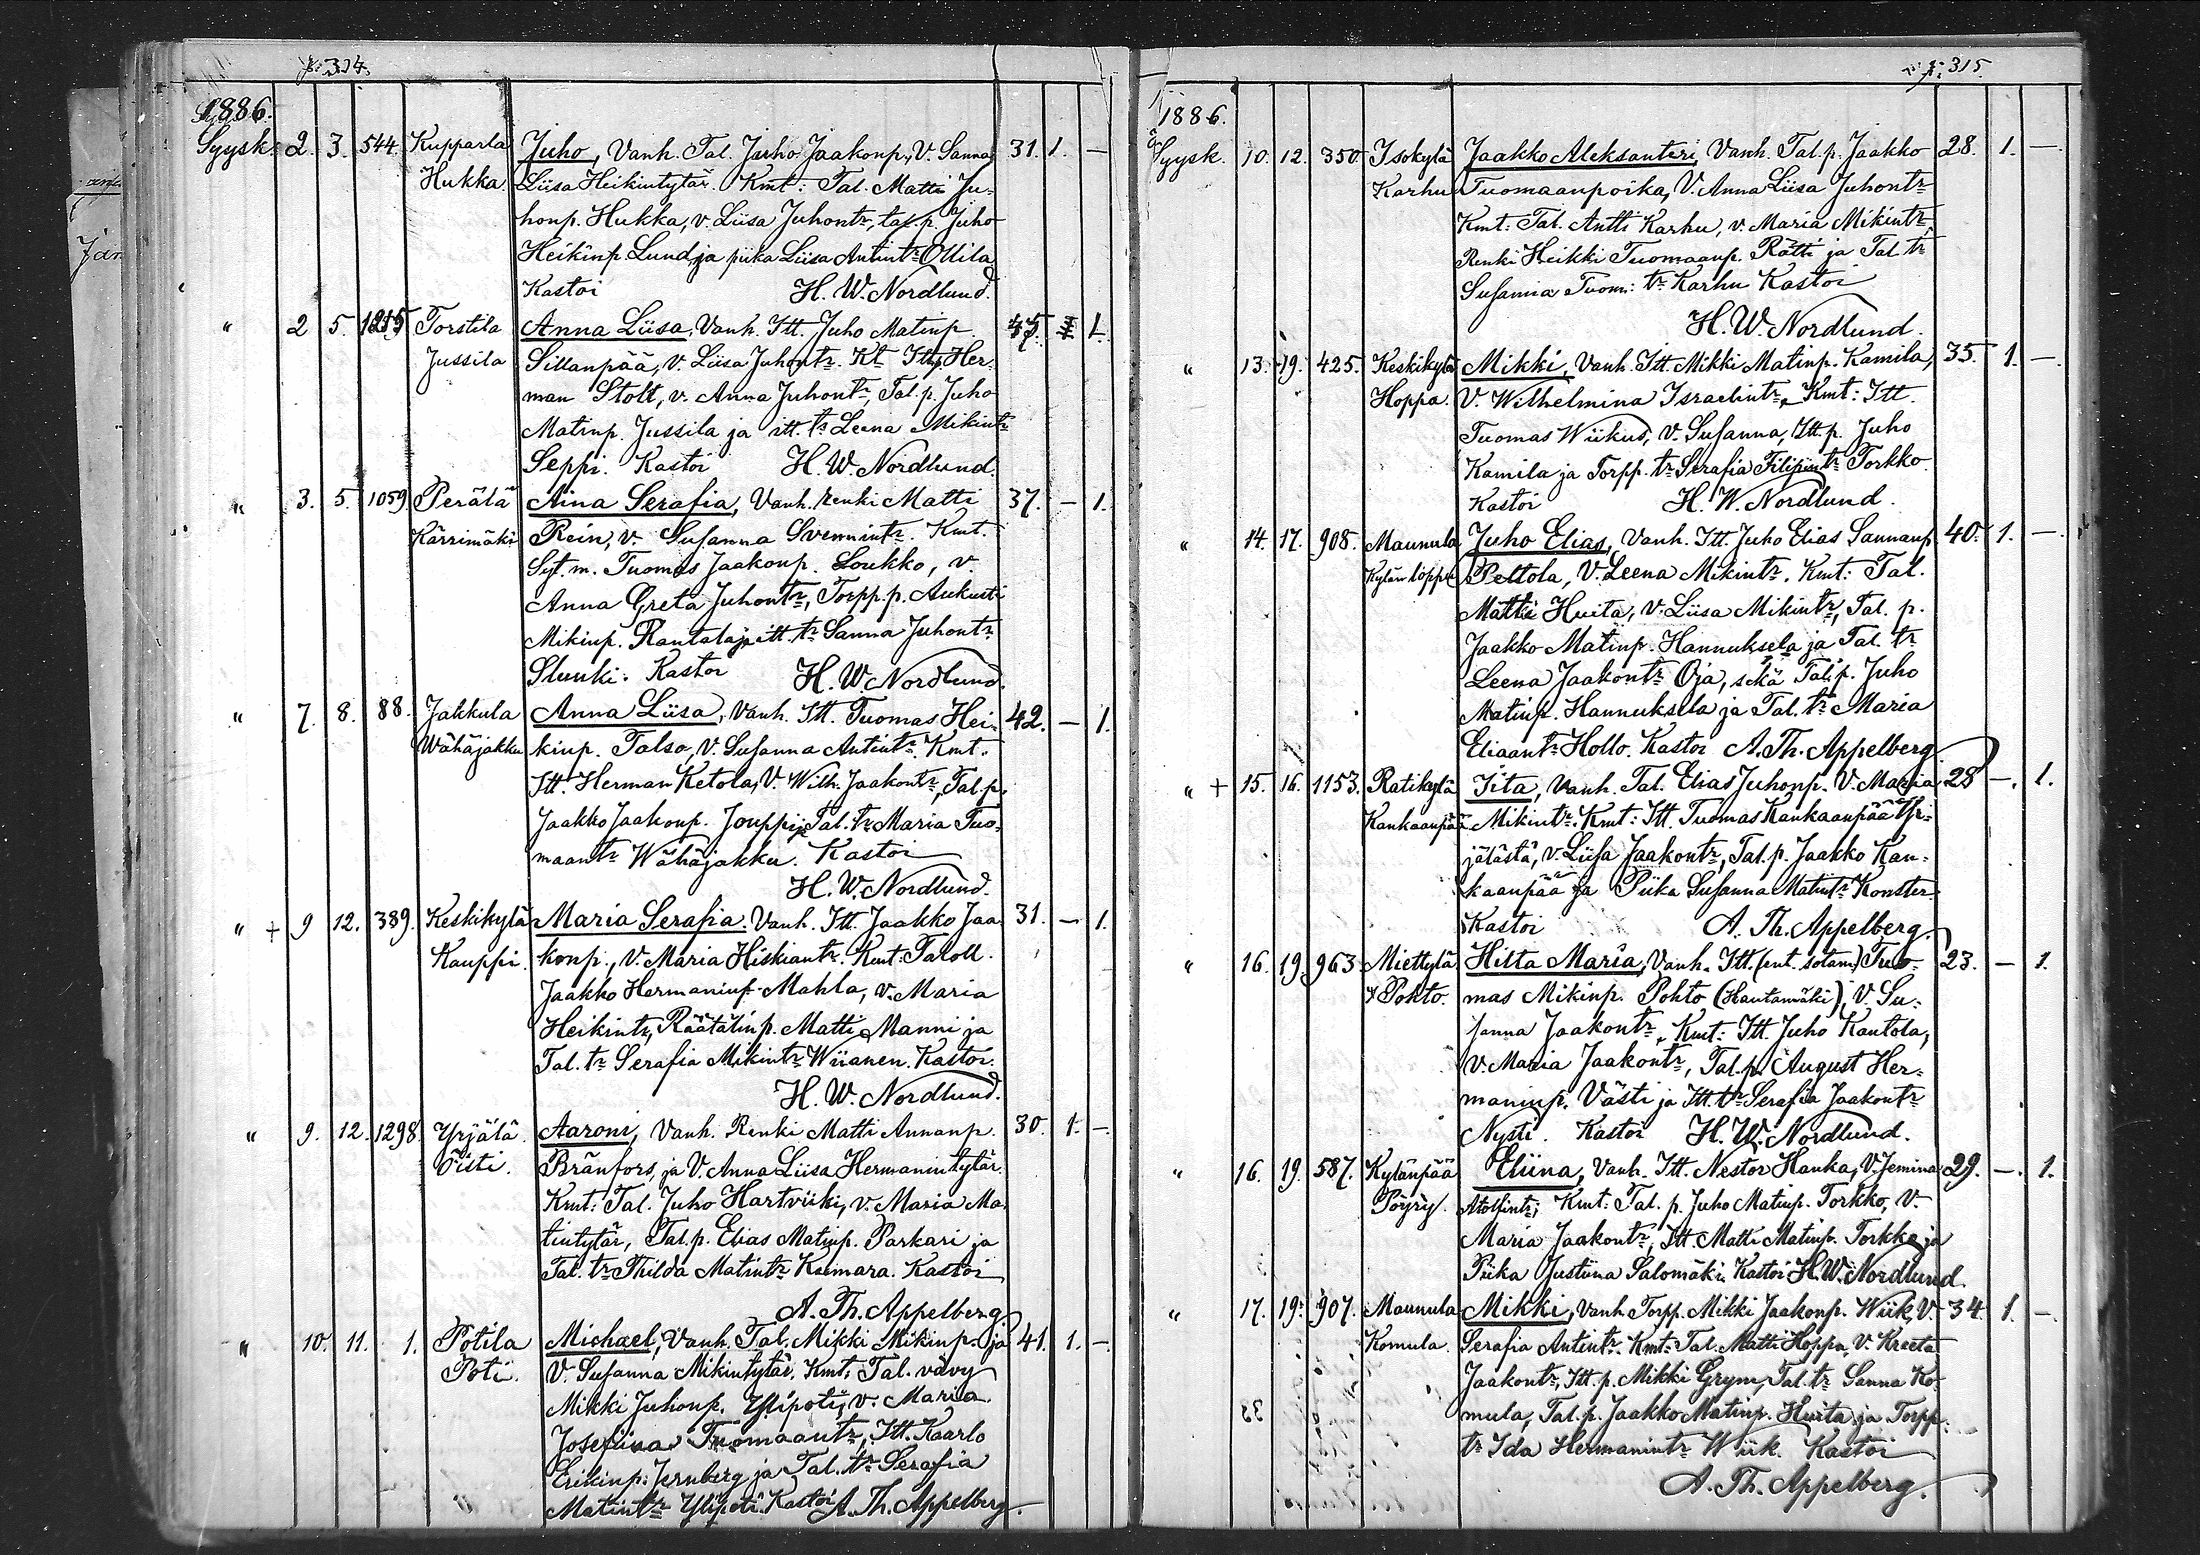 p. 314.
1886.
Syysk. 2. 3. 544. Kupparla Juho, Vanh. Tal. Juho Jaakonp., V. Sanna 31. 1. —
Hukka. Liisa Heikintytär. Kmt: Tal. Matti Ju-
honp. Hukka, v. Liisa Juhontr, tal. p. Juho
Heikinp. Lund, ja piika Liisa Antintr Ollila
Kastoi H. W. Nordlund.
" 2 5. 1215 Torstila Anna Liisa, Vanh. Itt. Juho Matinp 1.
Jussila Sillanpää, V. Liisa Juhontr. Kt Itt. Her-
man Stolt, v. Anna Juhontr, Tal. p. Juho
Matinp. Jussila ja itt. tr Leena Mikintr
Seppi. Kastoi H. W. Nordlund.
" 3. 5. 1059 Perälä Aina Serafia, Vanh. renki Matti 37. — 1.
Kärrimäki Rein, v. Susanna Svennintr. Kmt.
Syt. m. Tuomas Jaakonp. Loukko, v.
Anna Greta Juhontr, Torpp. p. Aukusti
Mikinp. Rantala ja itt. tr Sanna Juhontr
Slunki. Kastoi H. W. Nordlund.
" 7. 8. 88. Jakkula Anna Liisa, Vanh. Itt. Tuomas Hei- 42. — 1.
Wähäjakku kinp. Talso, V. Susanna Antintr. Kmt.
Itt. Herman Ketola, V. Wilh. Jaakontr, Tal. p.
Jaakko Jaakonp. Jouppi ja Tal. tr Maria Tuo-
maantr Wähäjakku. Kastoi
H. W. Nordlund.
" + 9 12. 389. Keskikylä Maria Serafia. Vanh. Itt. Jaakko Jaa 31. — 1.
Kauppi. konp., V. Maria Hiskiantr. Kmt: Taloll.
Jaakko Hermaninp. Mahla, v. Maria
Heikintr, Räätälinp. Matti Manni ja
Tal. tr Serafia Mikintr Wiianen. Kastoi
H. W. Nordlund.
" 9. 12. 1298. Yrjälä. Aaroni, Vanh. Renki Matti Annanp. 30. 1. —
Öisti. Bränfors, ja V. Anna Liisa Hermanintytär.
Kmt: Tal. Juho Hartviiki, v. Maria Ma-
tintytär, Tal. p. Elias Matinp. Parkari ja
Tal. tr Thilda Matintr Keimara. Kastoi
A. Th. Appelberg.
" 10. 11. 1. Potila Michael, Vanh. Tal. Mikki Mikinp. ja 41. 1. —
Poti. V. Susanna Mikintytär. Kmt: Tal. vävy
Mikki Juhonp. Ylipoti, v. Maria
Josefiina Tuomaantr, Itt. Kaarlo
Erikinp. Jernberg ja Tal. tr Serafia
Matintr Ylipoti. Kastoi A. Th. Appelberg.
p. 315.
1886.
Syysk. 10. 12. 350. Isokylä Jaakko Aleksanteri, Vanh. Tal. p. Jaakko 28. 1. —
Karhu Tuomaanpoika, V. Anna Liisa Juhontr
Kmt: Tal. Antti Karhu, v. Maria Mikintr
Renki Heikki Tuomaanp. Rätti ja Tal. tr
Susanna Tuom: tr Karhu Kastoi
H. W. Nordlund.
" 13. 19. 425. Keskikylä Mikki, Vanh. Itt. Mikki Matinp. Kamila, 35. 1. —
Hoppa. V. Wilhelmina Israelintr, Kmt: Itt.
Tuomas Wiikus, V. Susanna, Itt. p. Juho
Kamila ja Torpp. tr Serafia Filipintr Torkko.
Kastoi H. W. Nordlund.
" 14. 17. 908. Maunula Juho Elias, Vanh. Itt. Juho Elias Sannanp 40. 1. —
Kylän loppu Peltola, V. Leena Mikintr. Kmt: Tal.
Matti Huita, V. Liisa Mikintr, Tal. p.
Jaakko Matinp. Hannuksela ja Tal. tr
Leena Jaakontr Oja, sekä Tal. p. Juho
Matinp. Hannuksela ja Tal. tr Maria
Eliaantr Hollo. Kastoi A. Th. Appelberg
" + 15. 16. 1153. Ratikylä Iita, Vanh. Tal. Elias Juhonp. V. Maria 28 — 1.
Kankaanpää Mikintr. Kmt: Itt. Tuomas Kankaanpää Yr-
jälästä, V. Liisa Jaakontr, Tal. p. Jaakko Kan-
kaanpää ja Piika Susanna Matintr Konster
Kastoi A. Th. Appelberg.
" 16. 19. 963 Miettylä Hilta Maria, Vanh. Itt. (ent. sotam.) Tuo- 23. — 1.
Pohto. mas Mikinp. Pohto (Hautamäki), V. Su-
sanna Jaakontr, Kmt: Itt Juho Kantola,
V. Maria Jaakontr, Tal. p. August Her-
maninp. Västi ja Itt. tr Serafia Jaakontr
Nysti. Kastoi H. W. Nordlund.
" 16. 19. 587. Kylänpää Eliina, Vanh. Itt. Nestor Hauka, V. Jemina 29. —. 1.
Pöyry. Atolfintr; Kmt: Tal. p. Juho Matinp. Torkko, V.
Maria Jaakontr, Itt. Matti Matinp. Torkko ja
Piika Justiina Salomäki. Kastoi H. W. Nordlund.
" 17. 19. 907. Maunula Mikki, Vanh. Torpp. Mikki Jaakonp. Wiik, V. 34. 1. —.
Komula. Serafia Antintr. Kmt: Tal. Matti Hoppa, V. Kreeta
Jaakontr, Itt. p. Mikki Grym, Tal. tr Sanna Ko-
mula, Tal. p. Jaakko Matinp. Huita ja Torpp.
tr Ida Hermanintr Wiik. Kastoi
A. Th. Appelberg.